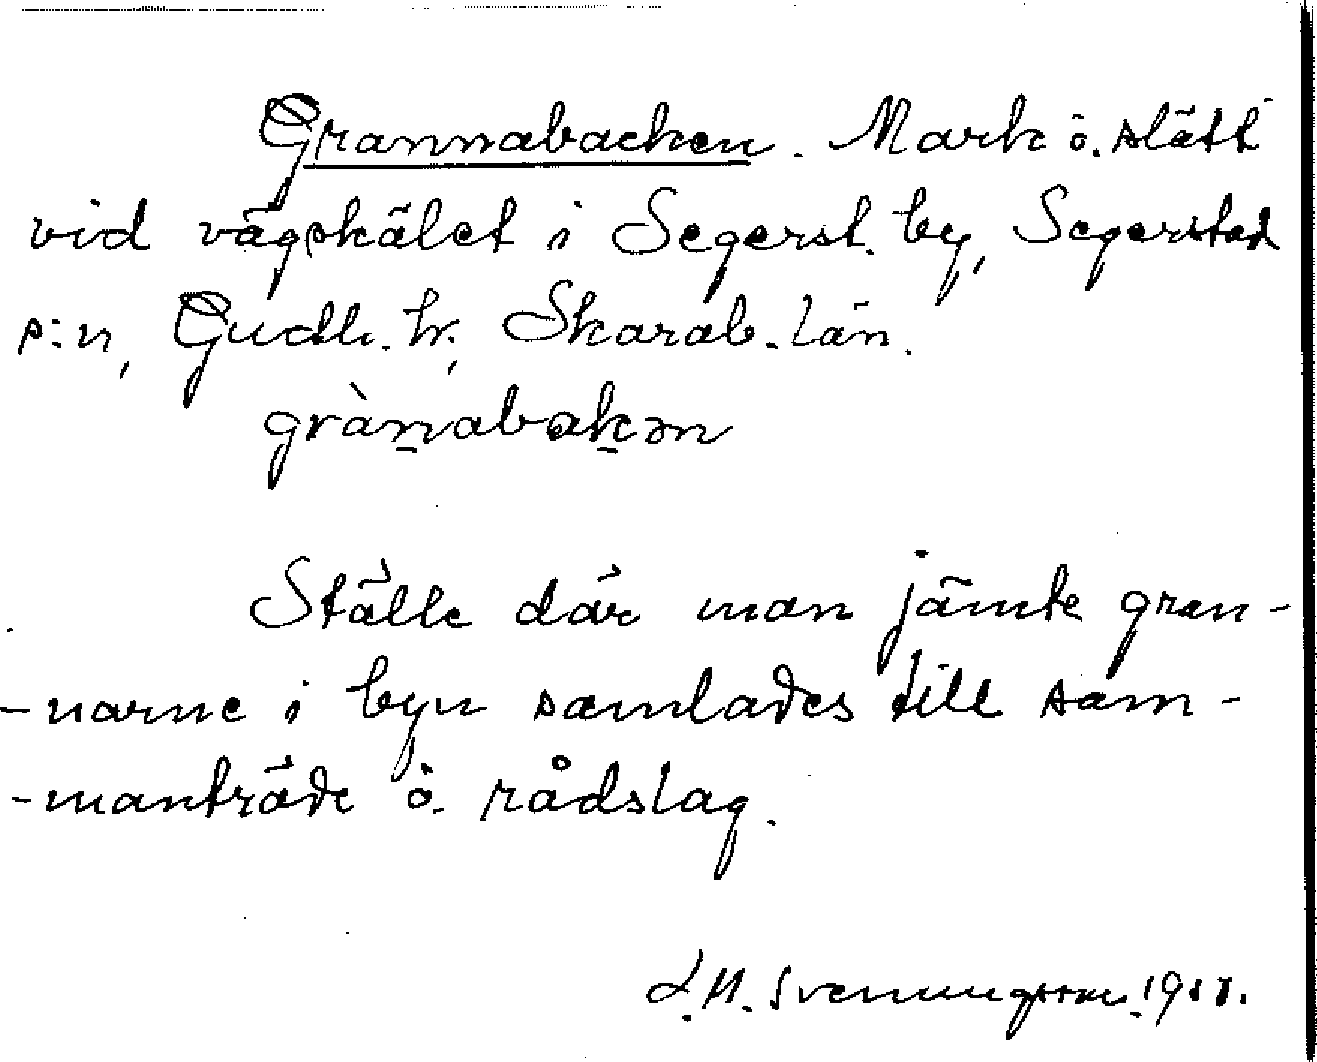 Grannabacken. Mark ö. slätt
vid vägskälet i Segerst. by, Segerstad
s:n, Gudh. hr, Skarab. län.
grànabakən
Ställe där man jämte gran-
-narne i byn samlades till sam-
-manträde ö. rådslag.